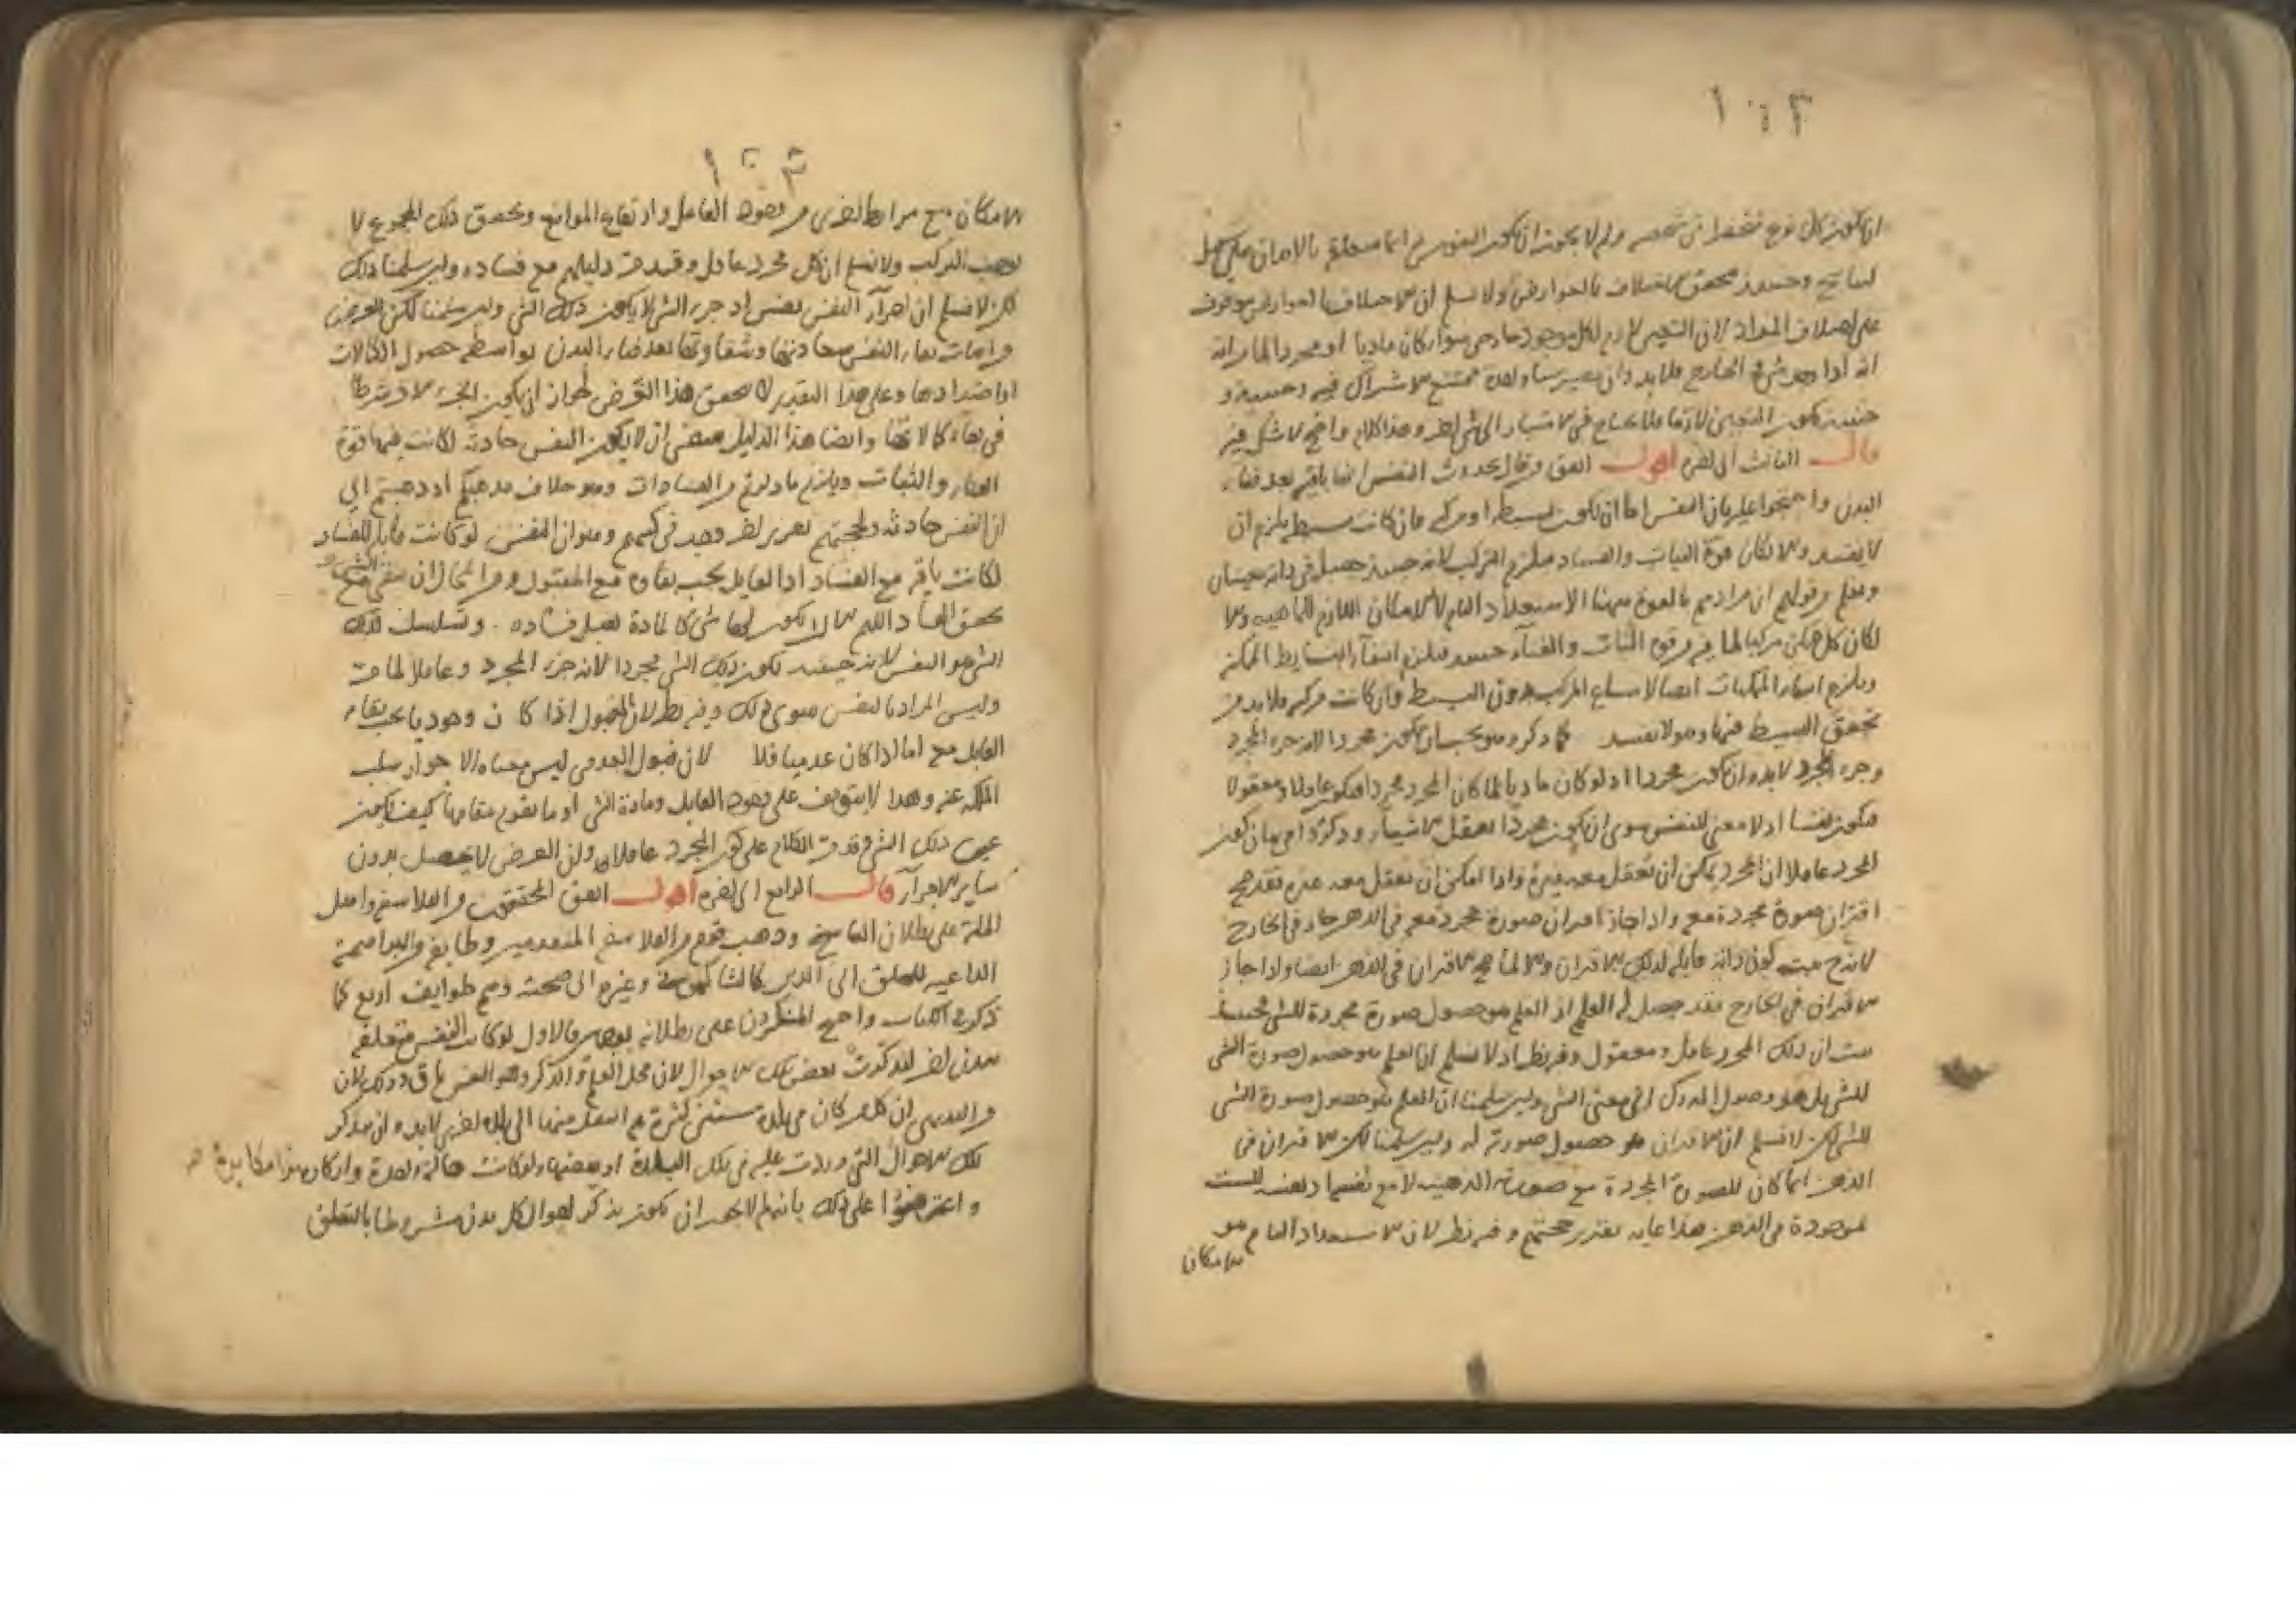 ان يكون كل نوع منحصرا في شخصه ولم لا يجوز ان يكون النفوس انما متعلقة بالابدان على سبيل
التناسخ وحينئذ تحقق الاختلاف بالعوارض ولا نسلم ان الاختلاف بالعوارض موقوف
على اختلاف المواد لان التعين لازم لكل موجود خارجي سواء كان ماديا او مجردا لما
انه اذا وجد شيء في الخارج فلا بد وان يصير ممتنع الاشتراك فيه وحينئذ
يكون التعين لازما فلا يحتاج في الامتياز الى شيء اخر وهذا كلام واضح لا شك فيه
قال الثالث الى اخره اقول اتفق من قال بحدوث النفس انها باقية بعد فناء
البدن واحتجوا عليه بان النفس اما ان تكون بسيطة او مركبة فان كانت بسيطة يلزم ان
لا يفسد والا لكان قوة الثبات والفساد فيلزم التركيب لانه حينئذ حصل في ذاته شيئان
ونعلم من قولهم ان مرادهم بالقوة ههنا الاستعداد التام لا الامكان اللازم للماهية والا
لكان كل ممكن مركبا لما فيه من قوة الثبات والفناء حينئذ فيلزم انتفاء البسايط الممكنة
ويلزم انتفاء المركبات ايضا لامتناع المركب بدون البسيط وان كانت مركبة فلا بد من
تحقق البسيط فيها وهو لا يفسد لما ذكر وهو يجب ان يكون مجردا لانه جزء المجرد
وجزء المجرد لا بد وان يكون مجردا اذ لو كان ماديا لما كان المجرد مجردا فيكون عاقلا ومعقولا
فيكون نفسا اذ لا معنى للنفس سوى ان يكون مجردا يعقل الاشياء وذكروا في بيان كون
المجرد عاقلا ان المجرد يمكن ان يعقل معه غيره واذا امكن ان يعقل معه غيره فقد صح
اقتران صورة مجردة معه واذا جاز اقتران صورة مجردة معه في الذهن جاز في الخارج
لان صحة كون ذاته قابلة لذلك الاقتران والا لما صح الاقتران في الذهن ايضا واذا جاز
الاقتران في الخارج فقد حصل له العلم اذ العلم هو حصول صورة مجردة للشيء فحينئذ
ثبت ان ذلك المجرد عاقل ومعقول وفيه نظر اذ لا نسلم ان العلم هو حصول صورة الشيء
للشيء بل هو وصول المدرك الى معنى الشيء ولئن سلمنا ان العلم هو حصول صورة الشيء
للشيء لكن لا نسلم ان الاقتران هو حصول صورته له ولئن سلمنا لكن الاقتران في
الذهن انما كان للصورة المجردة مع صورته الذهنية لا مع نفسها ونفسه ليست
موجودة في الذهن هذا غاية تقرير حجتهم وفيه نظر لان الاستعداد التام هو
الامكان
الامكان مع شرايط اخرى من وجود الفاعل وارتفاع الموانع وتحقق ذلك المجموع لا
يوجب التركيب ولا نسلم ان كل مجرد عاقل وقد مر دليلهم مع فساده ولئن سلمنا ذلك
لكن لا نسلم ان اجزاء النفس نفس اذ جزء الشيء لا يكون ذلك الشيء ولئن سلمنا لكن الغرض
من اثبات بقاء النفس سعادتها وشقاوتها بعد فناء البدن بواسطة حصول الكمالات
او اضدادها وعلى هذا التقدير لا يتحقق هذا الغرض لجواز ان يكون الجزء الاخر شرطا
في بقاء كمالاتها وايضا هذا الدليل يقتضي ان لا يكون النفس حادثة لكانت فيها قوة
الفناء والثبات ويلزم ما ذكرتم من الفسادات وهو خلاف مذهبكم اذ ذهبتم الى
ان النفس حادثة ولحجتهم تقرير اخر وجد في كتبهم وهو ان النفس لو كانت قابلة للفساد
لكانت باقية مع الفساد اذ القابل يجب بقاؤه مع المقبول ومن المحال ان يبقى الشيء مع
تحقق الفساد اللهم الا ان يكون لها شيء كالمادة يقبل فساده وتسلسل ذلك
الشيء هو النفس لانه حينئذ يكون ذلك الشيء مجردا لانه جزء المجرد وعاقلا لما مر
وليس المراد بالنفس سوى ذلك وفيه نظر لان المقبول اذا كان وجوديا يجب بقاء
القابل معه اما اذا كان عدميا فلا لان قبول العدمي ليس معناه الا جواز سلب
الملكة عنه وهذا لا يتوقف على وجود القابل ومادة الشيء او ما يقوم مقامها كيف يكون
عين ذلك الشيء وقد مر الكلام على كون المجرد عاقلا ولان الغرض لا يحصل بدون
ساير الاجزاء قال الرابع الى اخره اقول اتفق المحققون من الفلاسفة واهل
الملة على بطلان التناسخ وذهب قوم من الفلاسفة المتقدمين وطايفة من البراهمة
الداعية للخلق الى الدين وغيرهم الى صحته وهم طوايف اربع كما
ذكره في الكتاب واحتج المنكرون على بطلانه بوجهين الاول لو كانت النفس متعلقة
ببدن اخر لتذكرت بعض تلك الاحوال لان محل العلم والتذكر وهو النفس باق وذلك لان
من البديهي ان كل من كان في بلدة سنين كثيرة ثم انتقل منها الى بلدة اخرى لا بد وان يتذكر
تلك الاحوال التي وردت عليه في تلك البلدة او بعضها ولو كانت حالة واحدة وانكار هذا مكابرة
واعترضوا على ذلك بانه لم لا يجوز ان يكون تذكر احوال كل بدن مشروطا بالتعلق